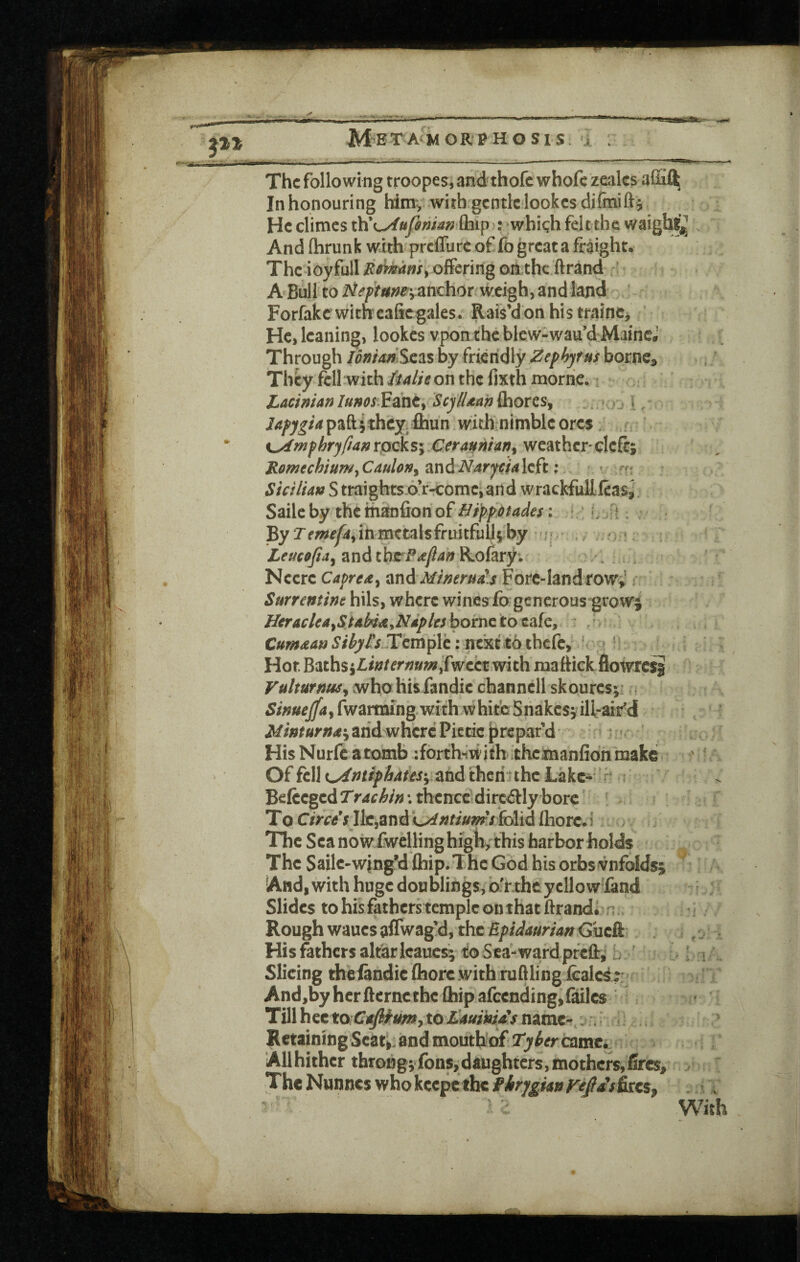 322 METAMORPHOSIS.
The following troopes, and thoſe whoſe zeales aſſiſt,
In honouring him, with gentle lookes diſmiſt;
He climes th'Auſonian ſhip: which felt the waight,
And ſhrunk with preſſure of ſo great a fraight.
The ioyfull Romans, offering on the ſtrand
A Bull to Neptune, anchor weigh, and land
Forſake with eaſie gales. Rais'd on his traine,
He, leaning, lookes vpon the blew-wau'd Maine.
Through Ionian Seas by friendly Zephyrus borne,
They fell with Italie on the ſixth morne.
Lacinian Iunos Fane, Scyllæan ſhores,
Iapygia paſt; they ſhun with nimble ores
Amphryſian rocks; Ceraunian, weather-clefts;
Romechium, Caulon, and Narycia left:
Sicilian Straights o'r-come, and wrackfull ſeas,
Saile by the manſion of Hippotades:
By Temeſa, in metals fruitfull; by
Leucoſia, and the Pæſtan Roſary.
Neere Capreæ, and Minerua's Fore-land row,
Surrentine hils, where wines ſo generous grow;
Heraclea, Stabiæ, Naples borne to eaſe,
Cumæan Sibyl's Temple: next to theſe,
Hot Baths; Linternum, ſweet with maſtick flowres;
Vulturnus, who his ſandie channell skoures;
Sinueſſa, ſwarming with white Snakes; ill-air'd
Minturnæ; and where Pietie prepar'd
His Nurſe a tomb: forth-with the manſion make
Of fell Antiphates; and then the Lake-
Beſeeged Trachin: thence directly bore
To Circe's Ile, and Antium's ſolid ſhore.
The Sea now ſwelling high, this harbor holds
The Saile-wing'd ſhip. The God his orbs vnfolds;
And, with huge doublings, o'r the yellow ſand
Slides to his fathers temple on that ſtrand.
Rough waues aſſwag'd, the Epidaurian Gueſt
His fathers altar leaues; to Sea-ward preſt,
Slicing the ſandie ſhore with ruſtling ſcales:
And, by her ſterne the ſhip aſcending, ſailes
Till hee to Caſtrum, to Lauinia's name-
Retaining Seat, and mouth of Tyber came.
All hither throng; ſons, daughters, mothers, ſires,
The Nunnes who keepe the Phrygian Veſta's fires,
With